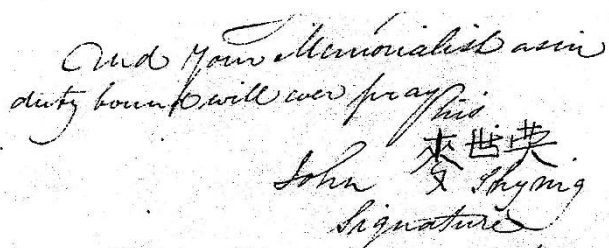 And your Memorialist as in
duty bound will ever pray
his
John 麥世英 Shying
Signature